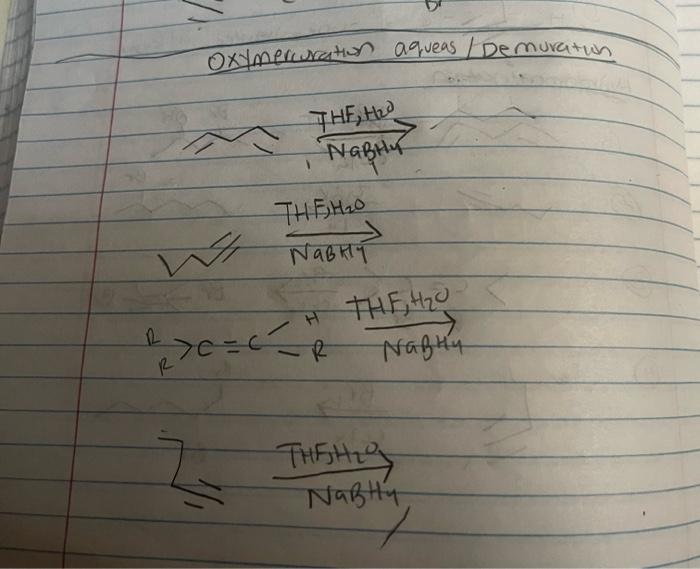 Br
Oxymercuration aqueas / Demuration
THF, H2O
NaBH4
THF, H2O
NaBH4
R
R >C = C < H
R
THF, H2O
NaBH4
THF, H2O
NaBH4